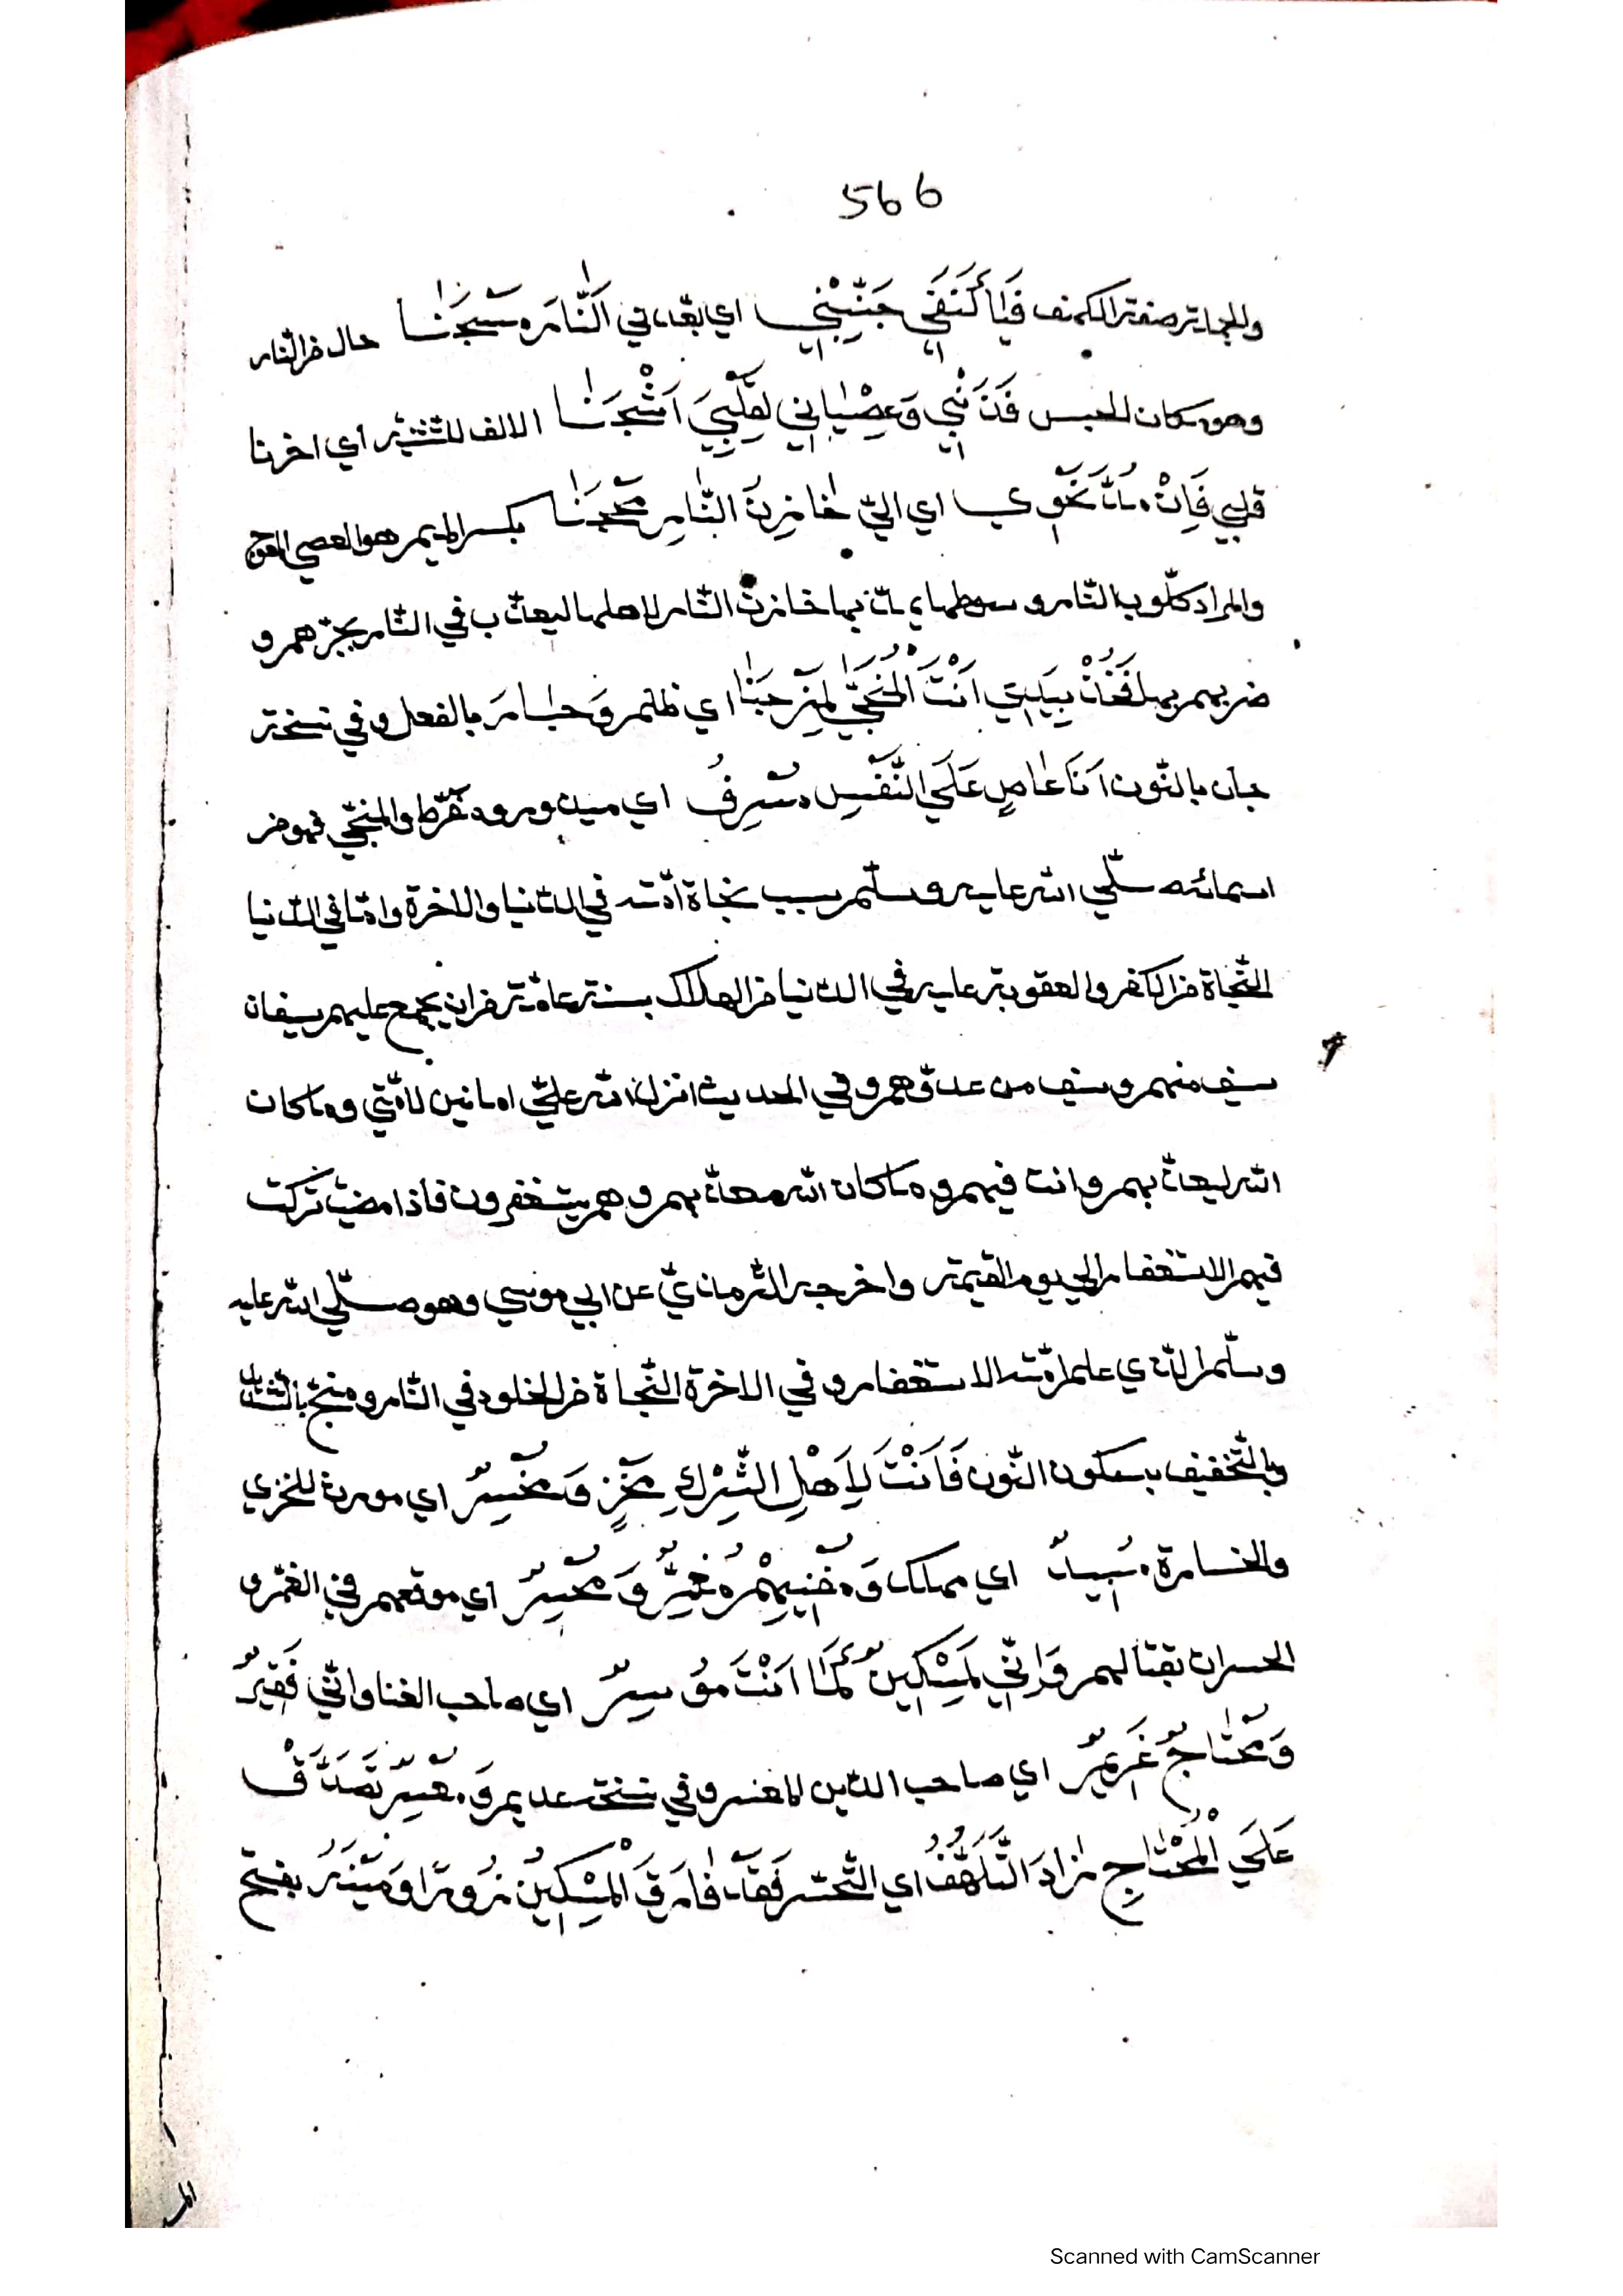 566
والحماية صفة الكهف فَيَا كَنَفَي جَنِّبْنِي اي بعّدني النَّار مسْجَنَا حال من النّار
وهو مكان الحبس فَذَنْبِي وَعِصْيَانِي لِقَلْبِيَ اَشْجَنَا الالف للتثنية اي احزنا
قلبي فَاِنْ مُدَّ نَحْوِي اي اليّ خَازِنُ النَّارِ مِحْجَنَا بكسر الميم هو العصي المعوج
والمراد كلّوب النّار و سوطها يمدّ بها خازن النّار لاهلها ليعذّب في النّار بجرّهم و
ضربهم بها فَخُذْ بِيَدِيَ اَنْتَ الْمُنَجِّي لِمَنْ جَنَا اي ظلم وَ جار بالفعل و في نسخة
جان بالنّون اَنَا عَاصٍ عَلَي النَّفْسِ مُسْرِفُ اي مفرّط والمنجّي فهو من
اسمائه صلّي الله عليه و سلّم بسبب نجاة امّته في الدّنيا والاخرة وامّا في الدّنيا
النّجاة من الكفر والعقوبة عليه في الدّنيا من الهلاك بسنة عامّة من ان يجمع عليهم سيفان
سيف منهم و سيف من عدوّهم و في الحديث انزل الله عليّ امانين لامّتي وما كان
الله ليعذّبهم وانت فيهم وما كان الله معذّبهم وهم يستغفرون فاذا مضيت تركت
فيهم الاستغفار الي يوم القيمة واخرجه التّرمذيّ عن ابي موسي وهو صلّي الله عليه
وسلّم الّذي علم امّته الاستغفار و في الاخرة النّجاة من الخلود في النّار و منجّ بالتّشديد
وبالتّخفيف بسكون النّون فَاَنْتَ لِاَهْلِ الشِّرْكِ مخْزٍ وَمخْسِرٌ اي مورث للخزي
والخسارة مُبِيدٌ اي مهلك وَمُفْنِيهِمْ وَمحْسِرٌ اي موقعهم في الغمّ و
الحسران بقتالهم وَاِنِّي لَمِسْكِينٌ كَمَا اَنْتَ مُوسِرٌ اي صاحب الغنا وانّي فَقِيرٌ
وَمحْتَاجٌ غَرِيمٌ اي صاحب الدّين و في نسخة عديم وَ معْسِرٌ تَصَدَّقْ
عَلَي الْمُحْتَاجِ زَادَ التَّلَهُّفُ اي التّحسّر فَقَدْ فَارَقَ الْمِسْكِينُ زُورًا وَمَيْنَهُ بفتح
الم
Scanned with CamScanner